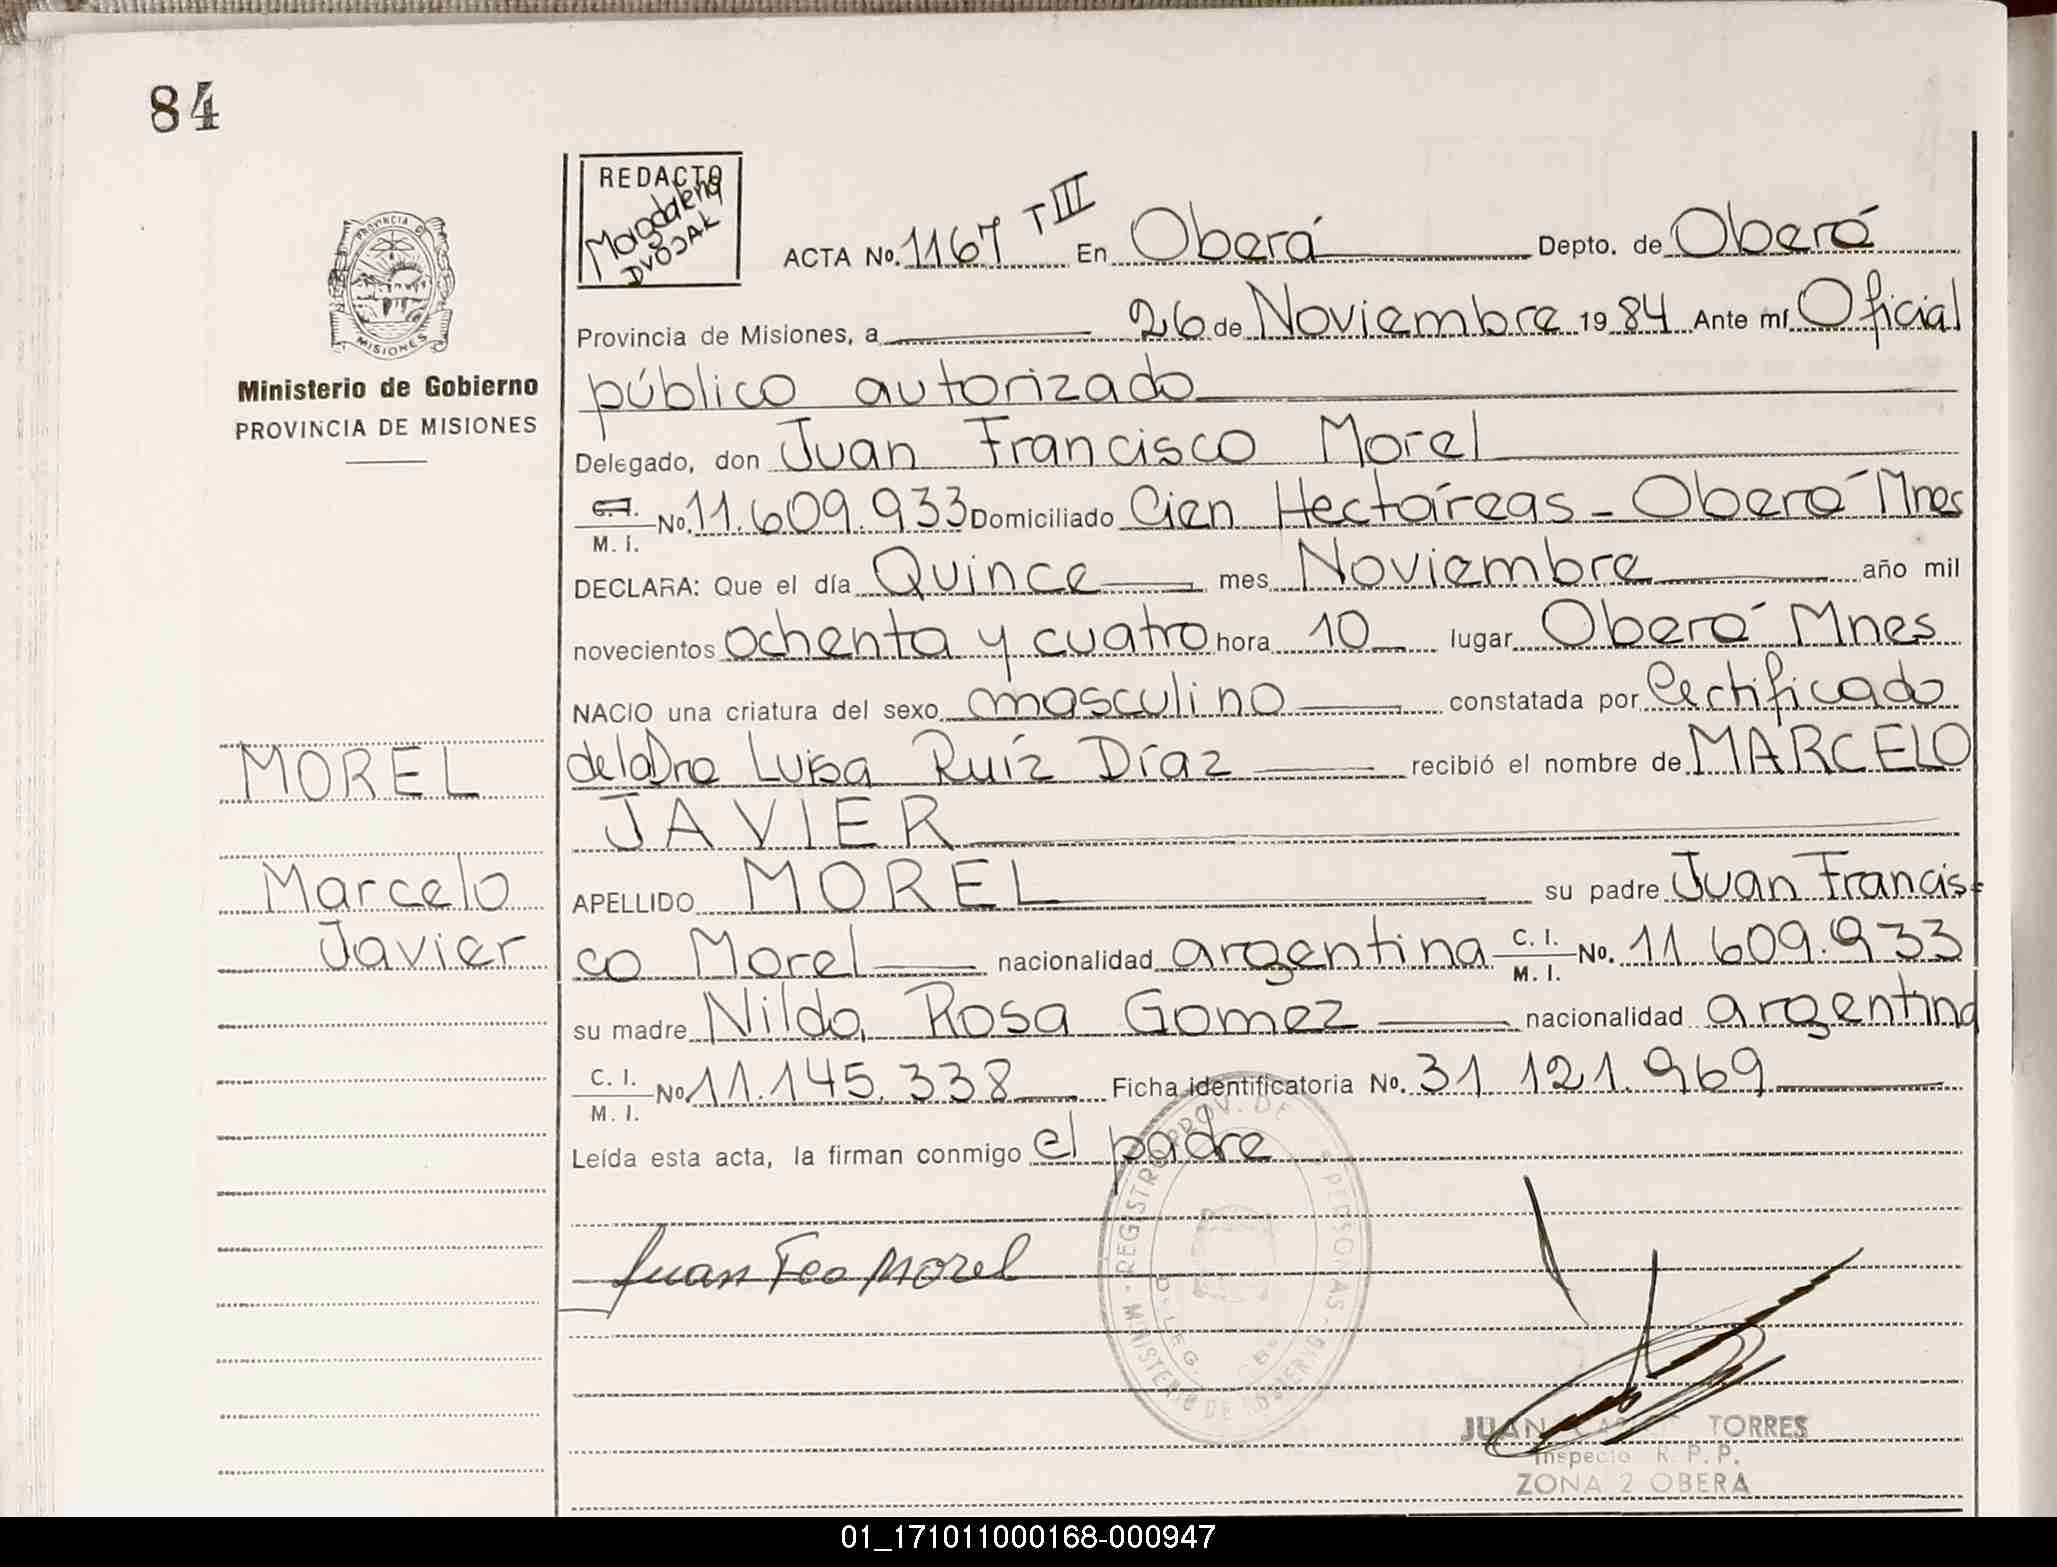 84
REDACTO
Magdalena
DVOJAK
ACTA No. 1167 T III En Oberá Depto. de Oberá
PROVINCIA DE
MISIONES
Provincia de Misiones, a 26 de Noviembre 19 84 Ante mí Oficial
Ministerio de Gobierno
PROVINCIA DE MISIONES
público autorizado
Delegado, don Juan Francisco Morel
C.I.
M. I. No. 11.609.933 Domiciliado Cien Hectáreas - Oberá Mnes
DECLARA: Que el día Quince mes Noviembre año mil
novecientos ochenta y cuatro hora 10 lugar Oberá Mnes
NACIO una criatura del sexo masculino constatada por Certificado
MOREL
de la Dra Luisa Ruíz Díaz recibió el nombre de MARCELO
JAVIER
Marcelo
Javier
APELLIDO MOREL su padre Juan Francis-
co Morel nacionalidad argentina C. I. No. 11 609.933
M. I.
su madre Nilda Rosa Gomez nacionalidad argentina
C. I.
M. I. No 11.145.338 Ficha identificatoria No. 31 121.969
Leída esta acta, la firman conmigo el padre
Juan Fco Morel
MINISTERIO DE GOBIERNO - REGISTRO PROV. DE PERSONAS
DELEG.
JUAN TORRES
Inspecto R. P. P.
ZONA 2 OBERA
01_171011000168-000947